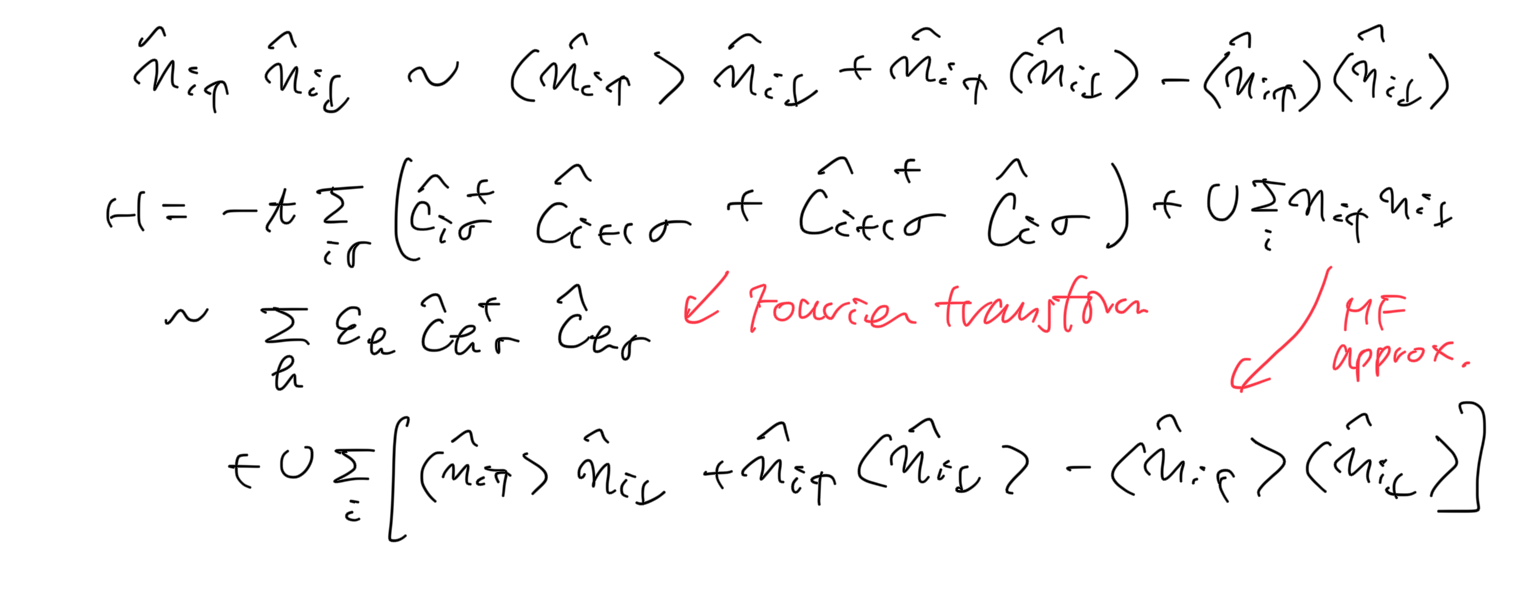 n̂_{i↑} n̂_{i↓} ~ ⟨n̂_{i↑}⟩ n̂_{i↓} + n̂_{i↑} ⟨n̂_{i↓}⟩ - ⟨n̂_{i↑}⟩⟨n̂_{i↓}⟩
H = -t Σ_{iσ} (ĉ_{iσ}^† ĉ_{i+1σ} + ĉ_{i+1σ}^† ĉ_{iσ}) + U Σ_i n_{i↑} n_{i↓}
~ Σ_k ε_k ĉ_{kσ}^† ĉ_{kσ} ↙ Fourier transform ↙ MF
approx.
+ U Σ_i [⟨n̂_{i↑}⟩ n̂_{i↓} + n̂_{i↑} ⟨n̂_{i↓}⟩ - ⟨n̂_{i↑}⟩⟨n̂_{i↓}⟩]